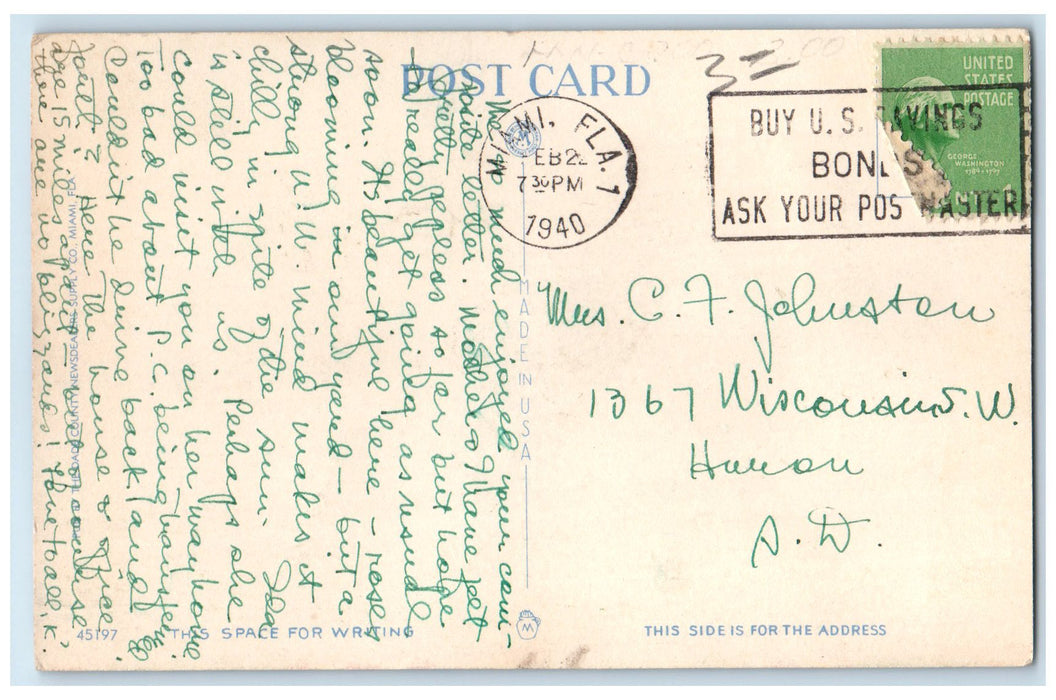 POST CARD
3 —
UNITED
STATES
POSTAGE
GEORGE
WASHINGTON
1789-1797
MIAMI, FLA. 1
FEB 2
7 30 PM
1940
BUY U.S. SAVINGS
BONDS
ASK YOUR POSTMASTER
We so much enjoyed your com-
posite letter. Mother & I have felt
pretty useless so far but hope
to really get going as usual
soon. Its beautiful here – roses
blooming in our yard – but a
strong N.W. wind makes it
chilly in spite of the sun. Ida
is still with us. Perhaps she
could visit you on her way home
Too bad about P.C. being
Couldn't he drive back and
forth? Here the house & office
are 15 miles apart
there are no blizzards! Love to all, K.
Mrs. C. F. Johnston
1367 Wisconsin S.W.
Huron
S.D.
MADE IN U S A
THE DADE COUNTY NEWSDEALERS SUPPLY CO., MIAMI, FLA
M
45197
THIS SPACE FOR WRITING
THIS SIDE IS FOR THE ADDRESS